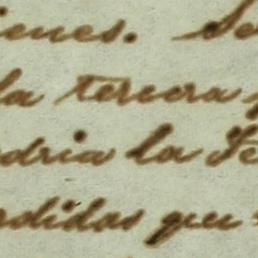 ienes. Se
la tercera
dria la Fe
rdidas que